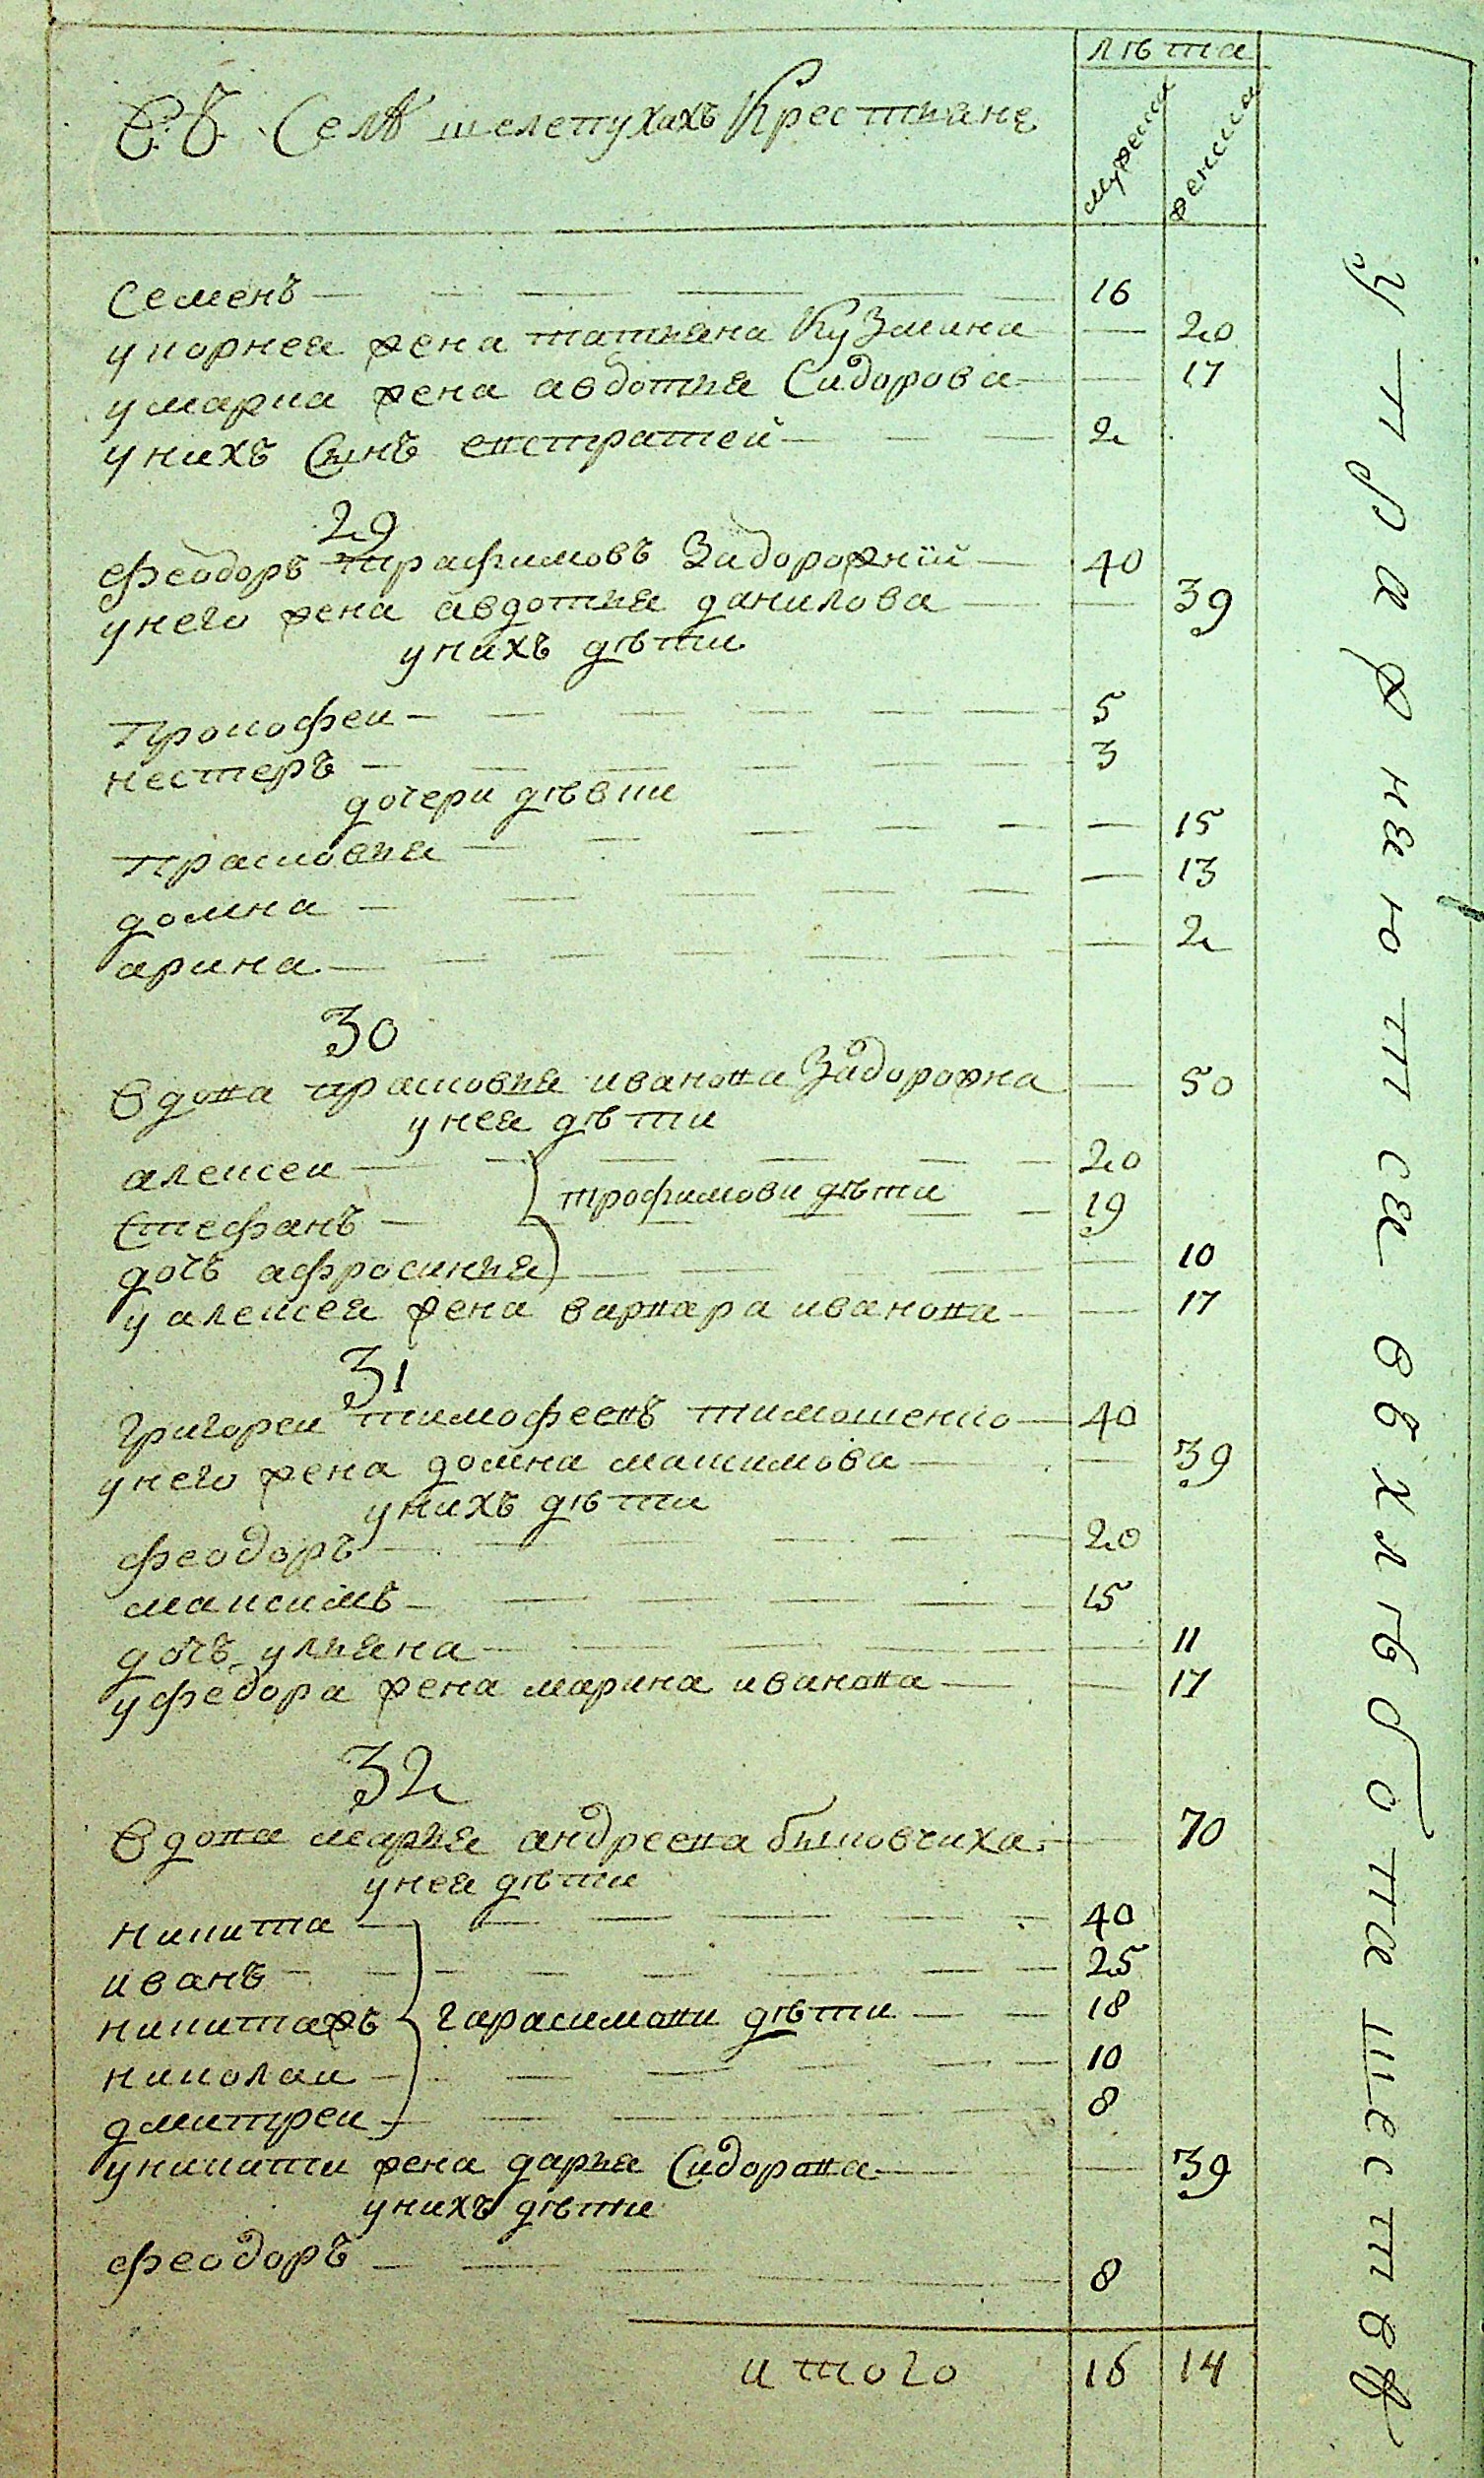 лѣта
Въ Селѣ шелепухахъ Крестьяне
мужеска
женска
Семенъ 16
у корнея жена татьяна Кузмина — 20
у марка жена авдотья Сидорова — 17
у нихъ Сынъ евстратей 2
29
феодоръ трафимовъ Задорожній 40
у него жена авдотья данилова — 39
у нихъ дѣти
прокофеи 5
нестеръ 3
дочери дѣвки
прасковья — 15
домна — 13
арина — 2
30
Вдова прасковья иванова Задорожна — 50
у нея дѣти
алексеи 20
Стефанъ трофимови дѣти 19
дочъ афросинья — 10
у алексея жена варвара иванова — 17
31
григореи тимофеевъ тимошенко 40
у него жена домна макимова — 39
у нихъ дѣти
феодоръ 20
максимъ 15
дочъ ульяна — 11
у федора жена марина иванова — 17
32
Вдова марья андреева быковчиха — 70
у нея дѣти
никита 40
иванъ 25
никита жъ гарасимови дѣти 18
николаи 10
дмитреи 8
у никити жена дарья Сидорова — 39
у нихъ дѣти
феодоръ 8
итого 16 14
упражняются въ хлѣбопашествѣ